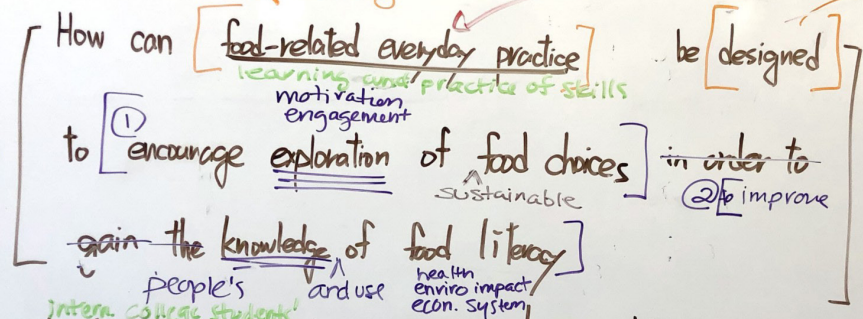 How can [food-related everyday practice] be [designed]
learning and practice of skills
motivation
engagement
to [① encourage exploration of food choices] in order to
sustainable
②[to improve
gain the knowledge of food literacy]
people's and use health
enviro impact
econ. system
intern college students'